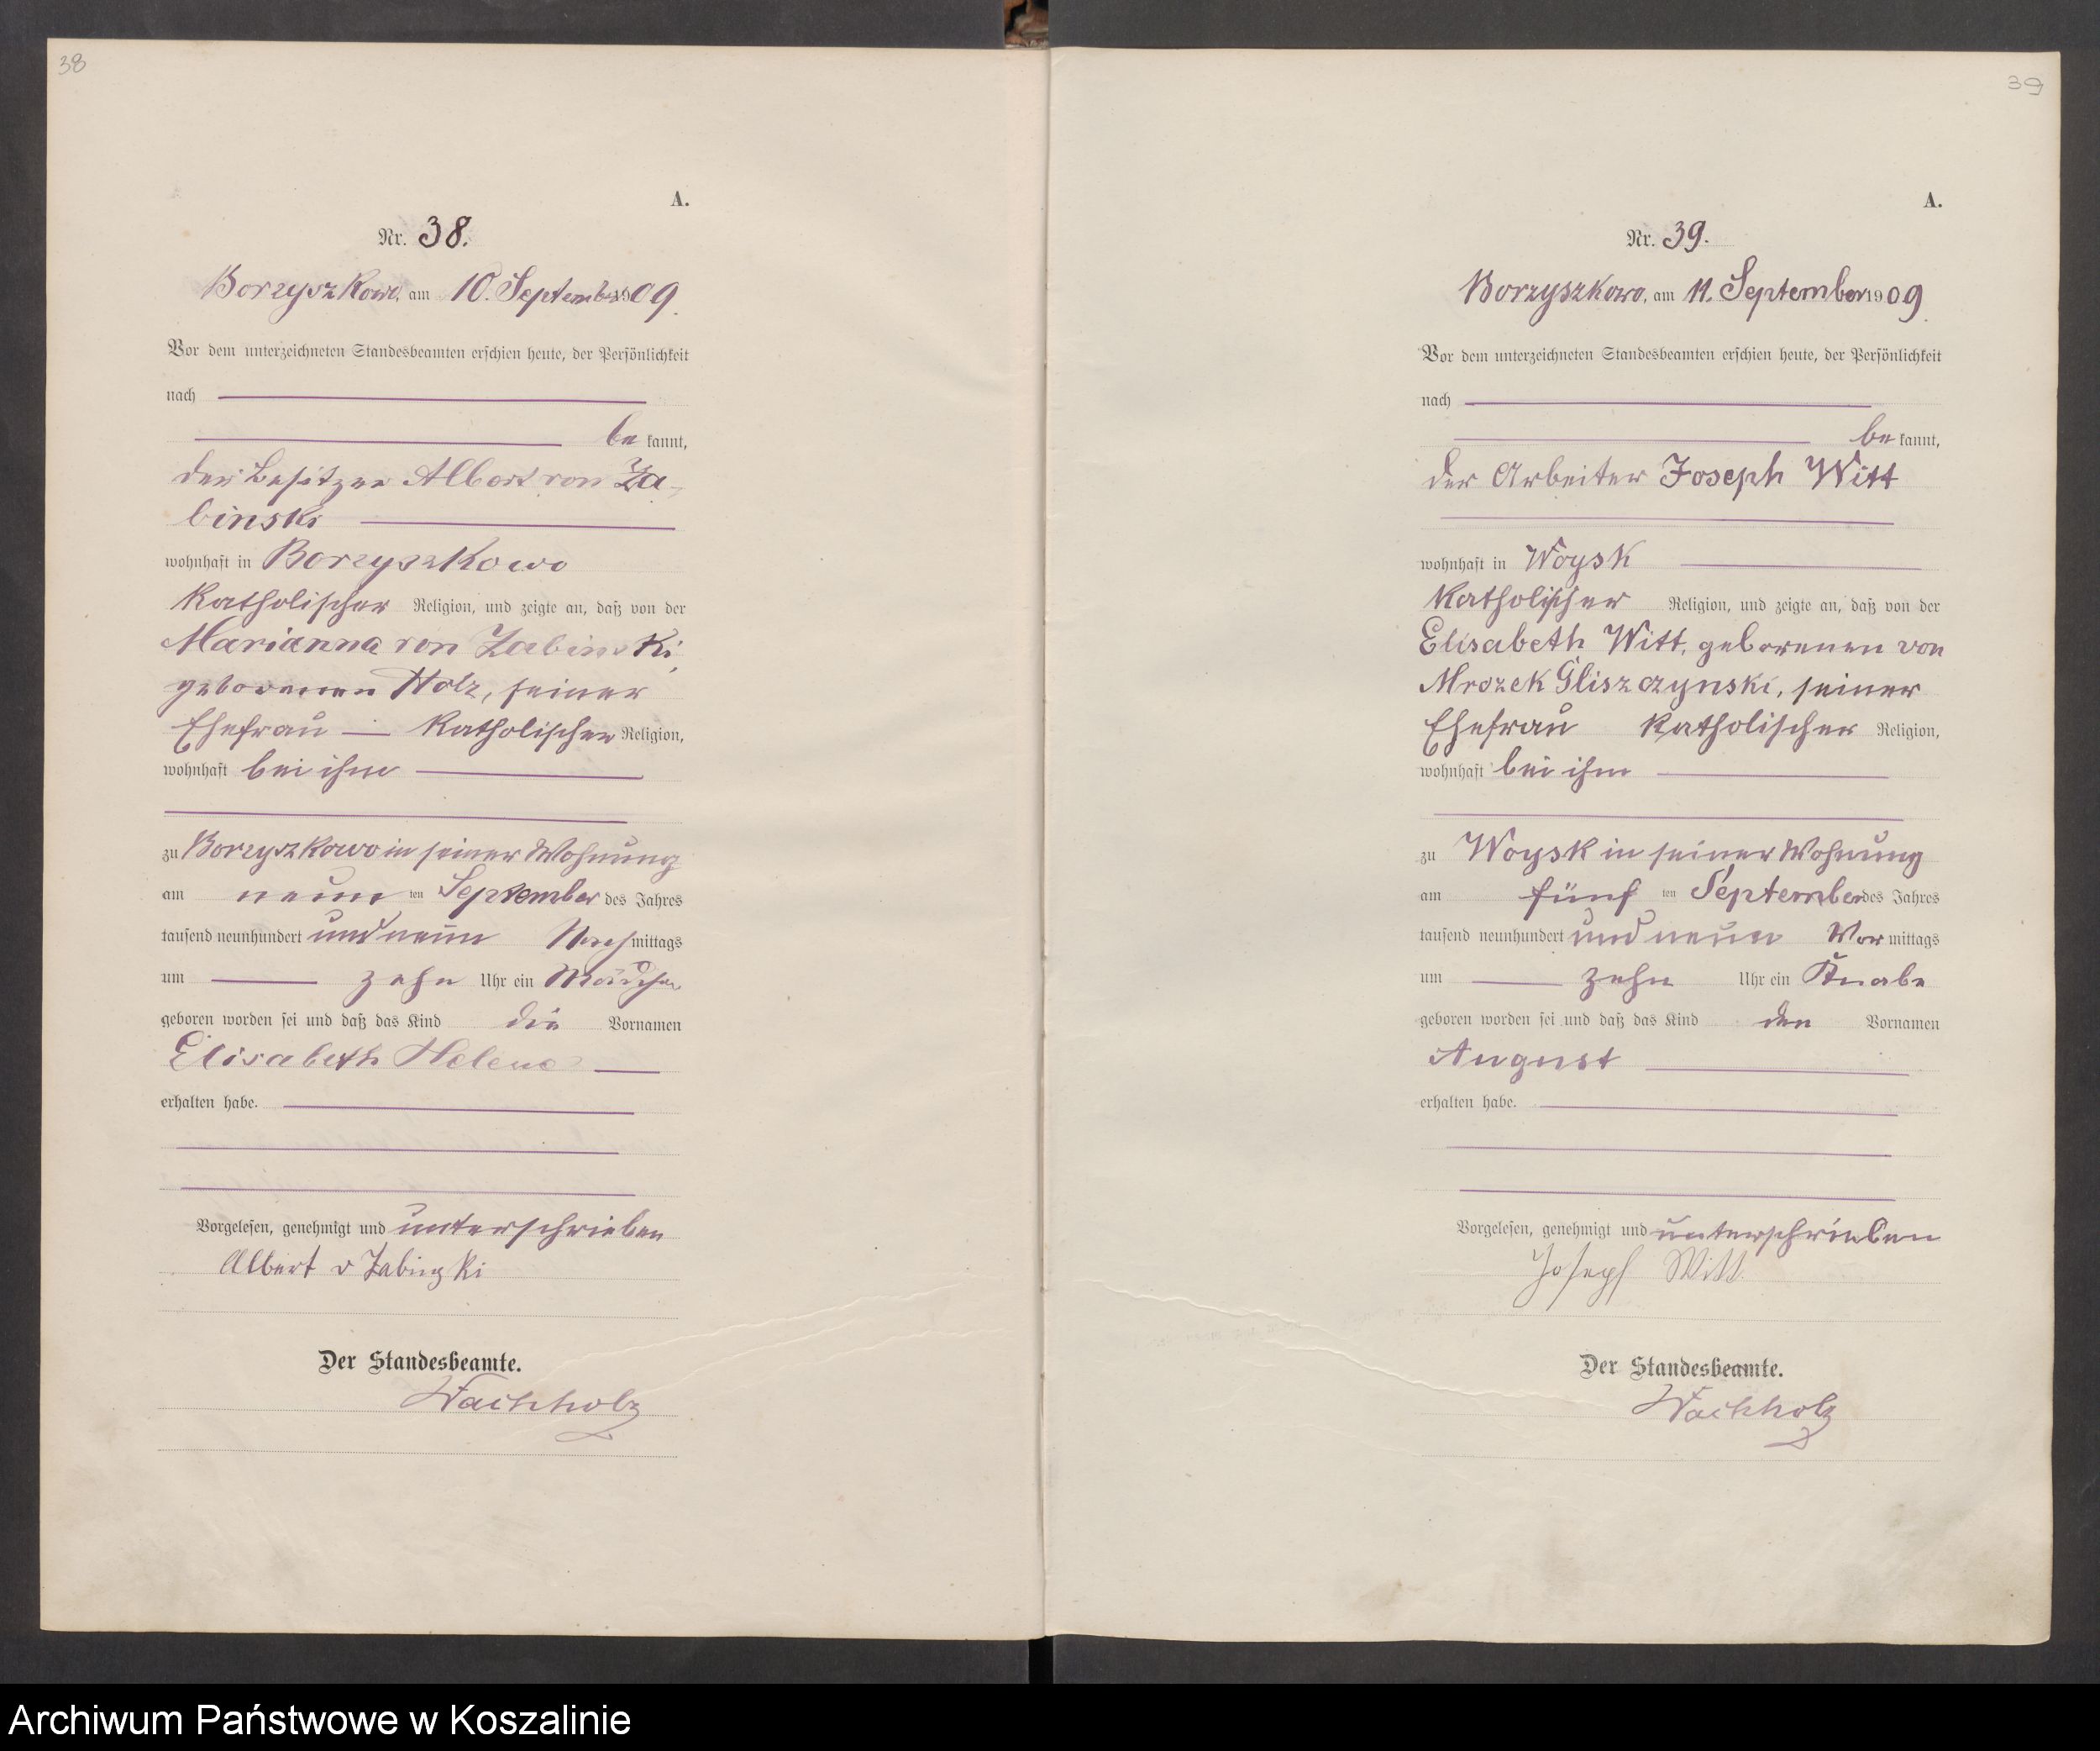 38
A.
Nr. 38.
Borzyszkowo, am 10. September 1909.
Vor dem unterzeichneten Standesbeamten erschien heute, der Persönlichkeit
nach
be kannt,
der Besitzer Albert von Za-
binski
wohnhaft in Borzyszkowo
katholischer Religion, und zeigte an, daß von der
Marianna von Zabinski,
geborenen Holz, seiner
Ehefrau — katholischer Religion,
wohnhaft bei ihm
zu Borzyszkowo in seiner Wohnung
am neun ten September des Jahres
tausend neunhundert und neun Nach mittags
um zehn Uhr ein Mädchen
geboren worden sei und daß das Kind die Vornamen
Elisabeth Helene
erhalten habe.
Vorgelesen, genehmigt und unterschrieben
Albert v Zabinski
Der Standesbeamte.
Wachholz
39
A.
Nr. 39.
Borzyszkowo, am 11. September 1909.
Vor dem unterzeichneten Standesbeamten erschien heute, der Persönlichkeit
nach
be kannt,
der Arbeiter Joseph Witt
wohnhaft in Woysk
katholischer Religion, und zeigte an, daß von der
Elisabeth Witt, geborenen von
Mrozek Gliszczynski, seiner
Ehefrau katholischer Religion,
wohnhaft bei ihm
zu Woysk in seiner Wohnung
am fünf ten September des Jahres
tausend neunhundert und neun Vor mittags
um zehn Uhr ein Knabe
geboren worden sei und daß das Kind den Vornamen
August
erhalten habe.
Vorgelesen, genehmigt und unterschrieben
Joseph Witt
Der Standesbeamte.
Wachholz
Archiwum Państwowe w Koszalinie